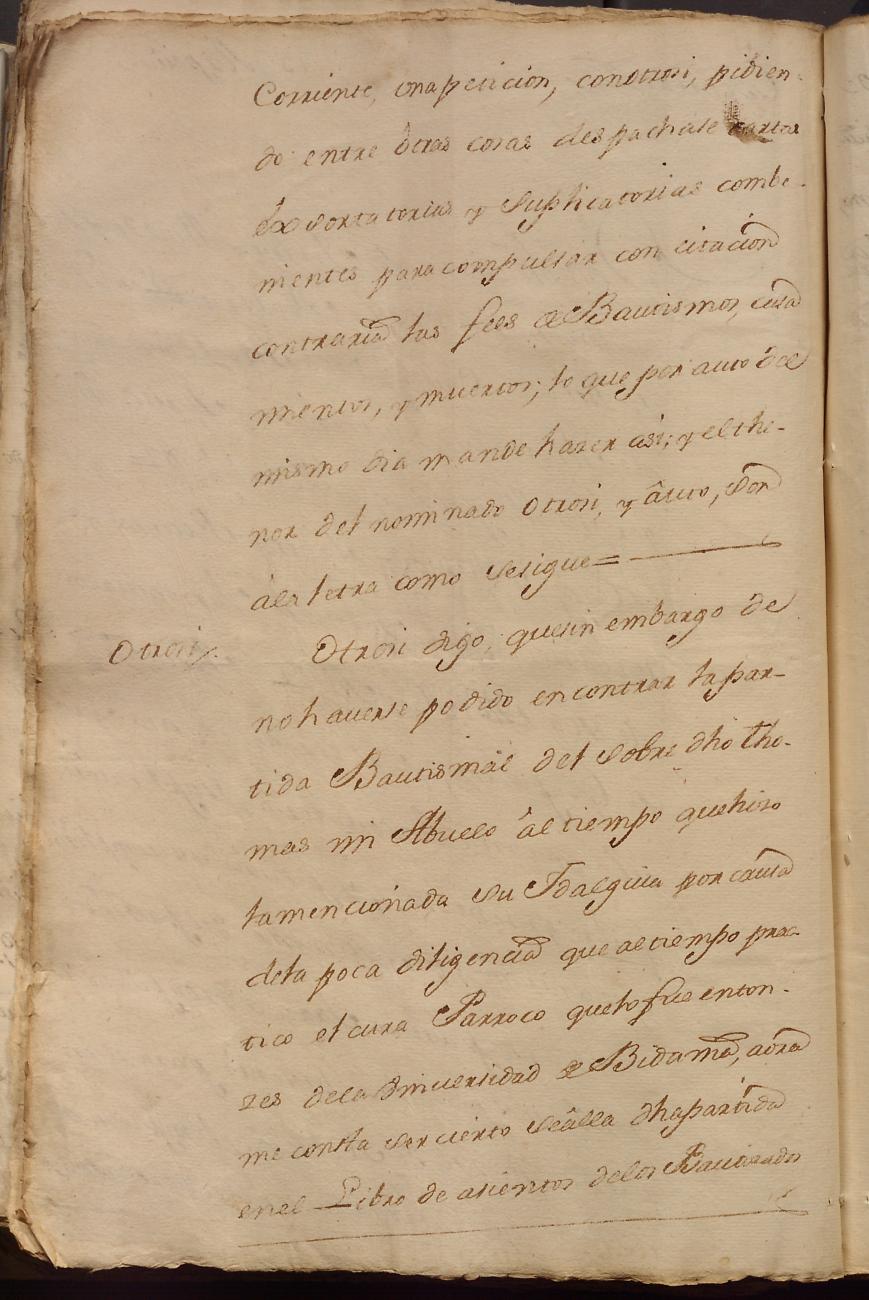 Corriente, una peticion, con otrosi, pidien-
do entre otras cosas despachase cartas
exsortatorias y suplicatorias combe-
nientes para compulsar con citacion
contraria las fees de Bautismos, casa
mientos, y muertos; lo que por auto del
mismo dia mande hazer asi; y el the-
nor del nominado otrosi, y auto, son
ála letra como se sigue =
Otrosi.
Otrosi digo, que sin embargo de
no hauerse podido encontrar la par-
tida Bautismal del sobre dho Tho-
mas mi Abuelo al tiempo que hizo
la mencionada su Idalguia por causa
dela poca diligencia que al tiempo prac-
tico el cura Parroco que lo fue enton-
zes dela Vniuersidad de Bidania, aora
me consta ser cierto se álla dha partida
en el Libro de asientos delos Bautizados